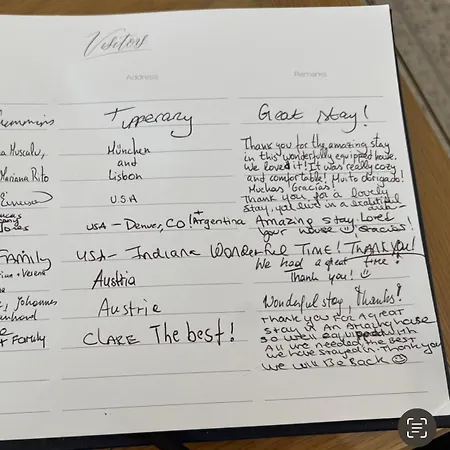 Visitors
Address Remarks
Tipperary Great stay!
a Muscalu, München Thank you for the amazing stay
and in this wonderfully equipped house.
Mariana Rito Lisbon We loved it! It was really cozy
and comfortable! Muito obrigado!
Muchas Gracias!
USA Thank you for a lovely
stay, you live in a beautiful
USA - Denver, CO + Argentina Amazing stay Loved
your house Gracias!
FAMILY USA - Indiana Wonderful Time! THANK YOU!
We had a great time!
Austria Thank you! ☺
Johannes
Austria Wonderful stay Thanks!
+ Family CLARE The best! Thank you for a great
stay in an amazing house
so well equipped with
all we needed the best
we have stayed in. Thank you
we will be back ☺